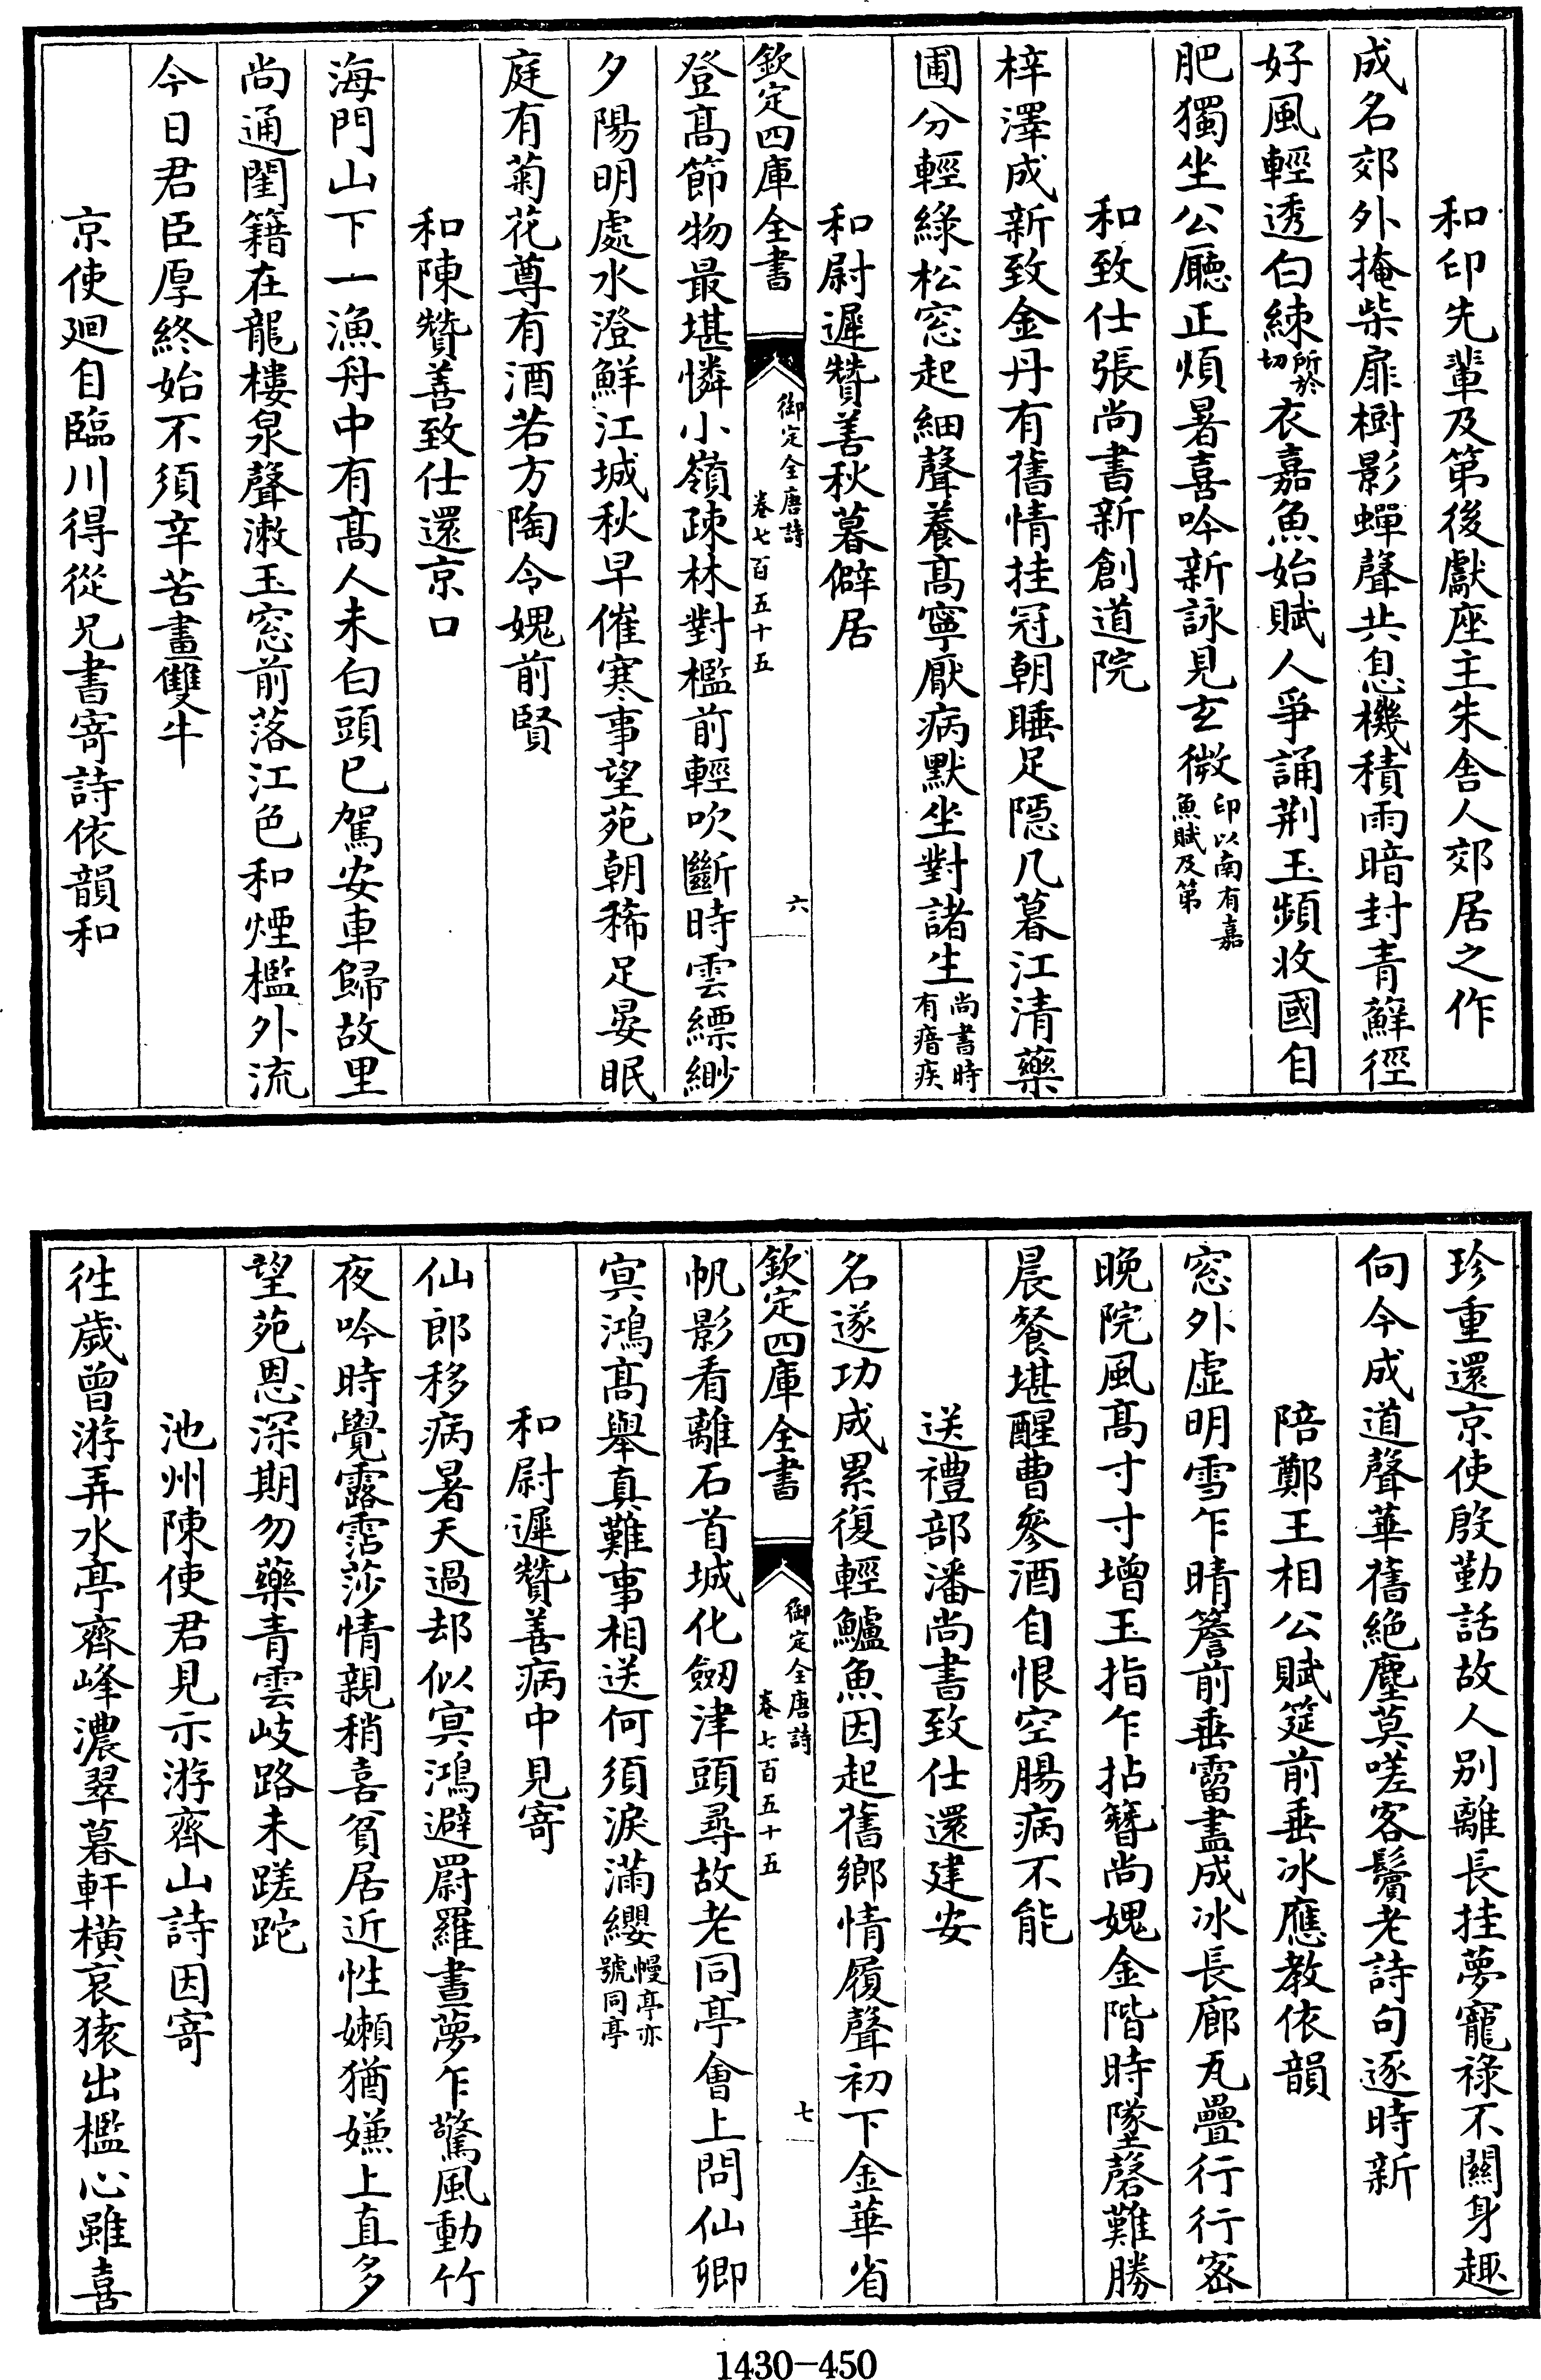 和印先輩及第後獻座主朱舍人郊居之作
成名郊外掩柴扉樹影蟬聲共息機積雨暗封青蘚徑
好風輕透白綀所於切衣嘉魚始賦人爭誦荆玉頻收國自
肥獨坐公廳正煩暑喜吟新詠見玄微印以南有嘉魚賦及第
和致仕張尚書新創道院
梓澤成新致金丹有舊情挂冠朝睡足隱几暮江清藥
圃分輕綠松窓起細聲養髙寧厭病默坐對諸生尚書時有瘖疾
和尉遲贊善秋暮僻居
欽定四庫全書
御定全唐詩
卷七百五十五
六
登髙節物最堪憐小嶺疎林對檻前輕吹斷時雲縹緲
夕陽明處水澄鮮江城秋早催寒事望苑朝稀足晏眠
庭有菊花尊有酒若方陶令媿前賢
和陳贊善致仕還京口
海門山下一漁舟中有髙人未白頭已駕安車歸故里
尚通閨籍在龍樓泉聲漱玉窓前落江色和煙檻外流
今日君臣厚終始不須辛苦畫雙牛
京使廻自臨川得從兄書寄詩依韻和
珍重還京使殷勤話故人别離長挂夢寵祿不關身趣
向今成道聲華舊絶塵莫嗟客鬢老詩句逐時新
陪鄭王相公賦筵前垂冰應教依韻
窓外虚明雪乍晴簷前垂霤盡成冰長廊瓦疊行行密
晩院風髙寸寸增玉指乍拈簪尚媿金階時墜磬難勝
晨餐堪醒曹參酒自恨空腸病不能
送禮部潘尚書致仕還建安
名遂功成累復輕鱸魚因起舊鄉情履聲初下金華省
欽定四庫全書
御定全唐詩
卷七百五十五
七
帆影看離石首城化劒津頭尋故老同亭會上問仙卿
㝠鴻髙舉真難事相送何須淚滿纓幔亭亦號同亭
和尉遲贊善病中見寄
仙郎移病暑天過却似㝠鴻避罻羅晝夢乍驚風動竹
夜吟時覺露霑莎情親稍喜貧居近性嬾猶嫌上直多
望苑恩深期勿藥青雲岐路未蹉跎
池州陳使君見示游齊山詩因寄
往歲曾游弄水亭齊峰濃翠暮軒橫哀猿出檻心雖喜
1430-450